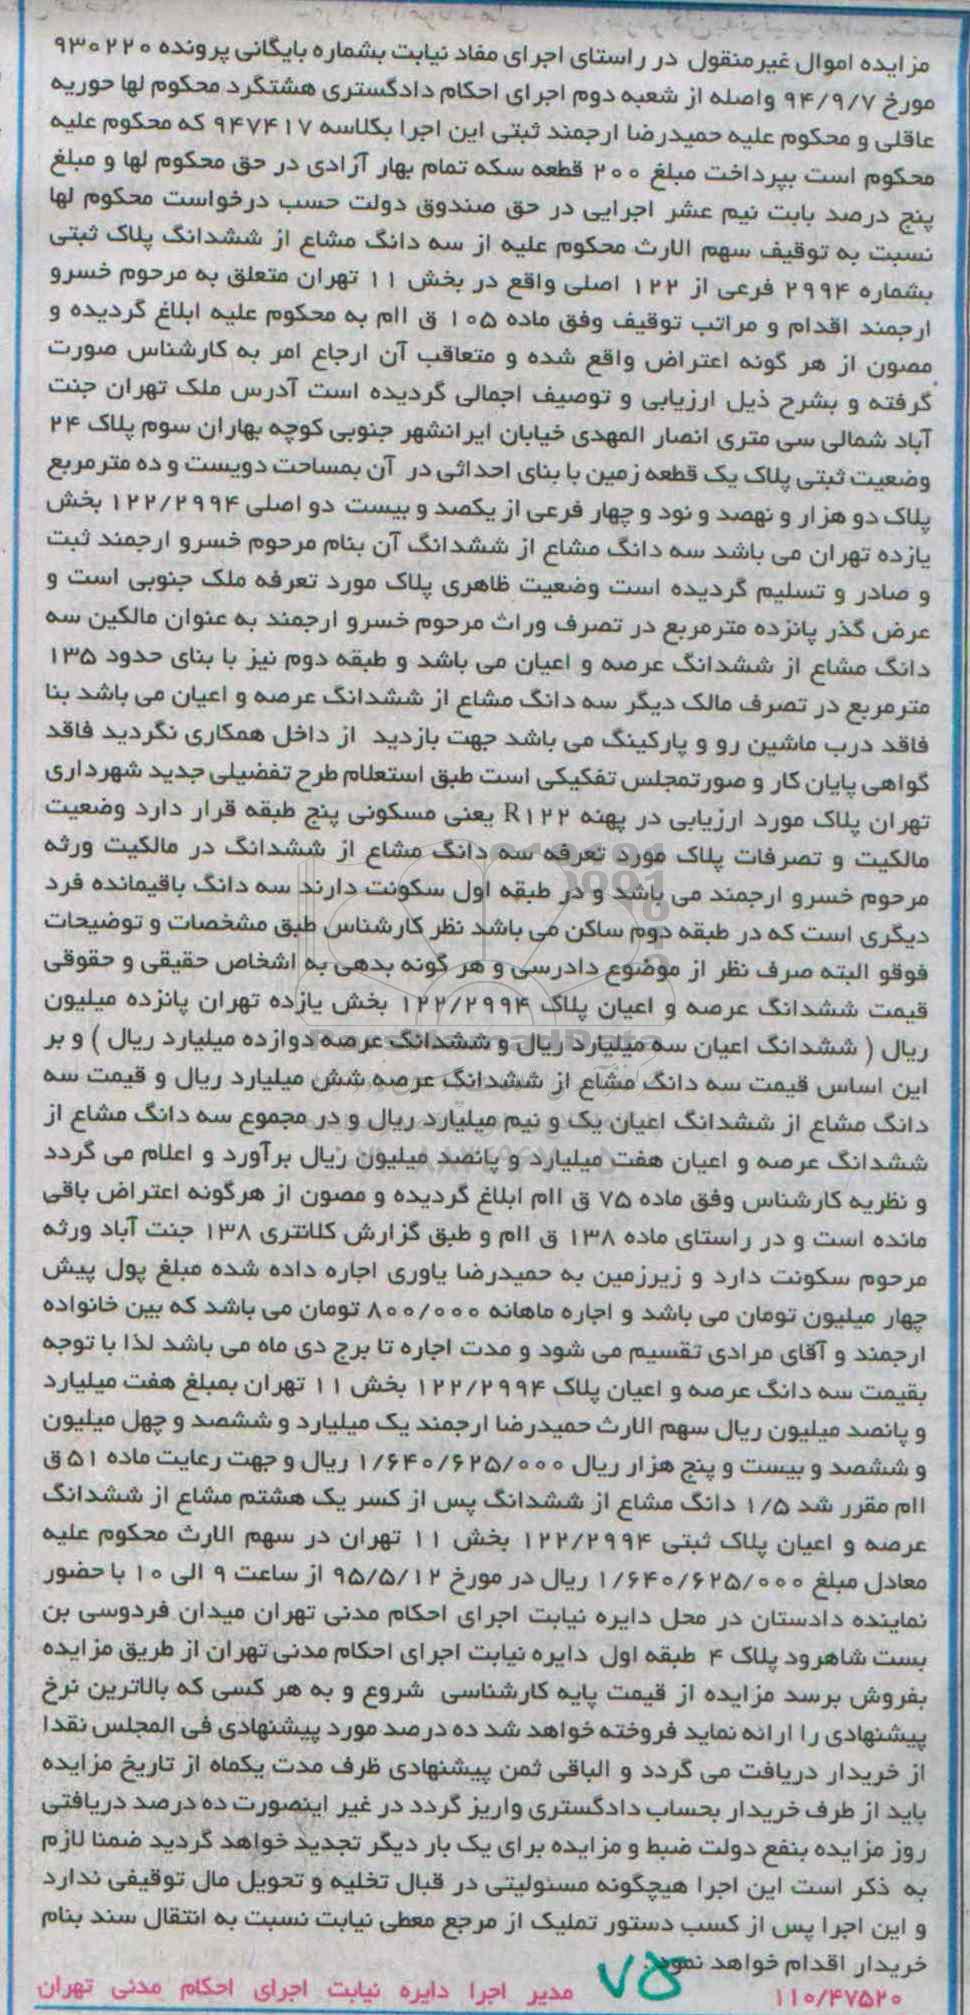 مزایده اموال غیرمنقول در راستای اجرای مفاد نیابت بشماره بایگانی پرونده ۹۳۰۲۲۰
مورخ ۹۴/۹/۷ واصله از شعبه دوم اجرای احکام دادگستری هشتگرد محکوم لها حوریه
عاقلی و محکوم علیه حمیدرضا ارجمند ثبتی این اجرا بکلاسه ۹۴۷۴۱۷ که محکوم علیه
محکوم است بپرداخت مبلغ ۲۰۰ قطعه سکه تمام بهار آزادی در حق محکوم لها و مبلغ
پنج درصد بابت نیم عشر اجرایی در حق صندوق دولت حسب درخواست محکوم لها
نسبت به توقیف سهم الارث محکوم علیه از سه دانگ مشاع از ششدانگ پلاک ثبتی
بشماره ۲۹۹۴ فرعی از ۱۲۲ اصلی واقع در بخش ۱۱ تهران متعلق به مرحوم خسرو
ارجمند اقدام و مراتب توقیف وفق ماده ۱۰۵ ق اام به محکوم علیه ابلاغ گردیده و
مصون از هر گونه اعتراض واقع شده و متعاقب آن ارجاع امر به کارشناس صورت
گرفته و بشرح ذیل ارزیابی و توصیف اجمالی گردیده است آدرس ملک تهران جنت
آباد شمالی سی متری انصار المهدی خیابان ایرانشهر جنوبی کوچه بهاران سوم پلاک ۲۴
وضعیت ثبتی پلاک یک قطعه زمین با بنای احداثی در آن بمساحت دویست و ده مترمربع
پلاک دو هزار و نهصد و نود و چهار فرعی از یکصد و بیست دو اصلی ۱۲۲/۲۹۹۴ بخش
یازده تهران می باشد سه دانگ مشاع از ششدانگ آن بنام مرحوم خسرو ارجمند ثبت
و صادر و تسلیم گردیده است وضعیت ظاهری پلاک مورد تعرفه ملک جنوبی است و
عرض گذر پانزده مترمربع در تصرف وراث مرحوم خسرو ارجمند به عنوان مالکین سه
دانگ مشاع از ششدانگ عرصه و اعیان می باشد و طبقه دوم نیز با بنای حدود ۱۳۵
مترمربع در تصرف مالک دیگر سه دانگ مشاع از ششدانگ عرصه و اعیان می باشد بنا
فاقد درب ماشین رو و پارکینگ می باشد جهت بازدید از داخل همکاری نگردید فاقد
گواهی پایان کار و صورتمجلس تفکیکی است طبق استعلام طرح تفضیلی جدید شهرداری
تهران پلاک مورد ارزیابی در پهنه R۱۲۲ یعنی مسکونی پنج طبقه قرار دارد وضعیت
مالکیت و تصرفات پلاک مورد تعرفه سه دانگ مشاع از ششدانگ در مالکیت ورثه
مرحوم خسرو ارجمند می باشد و در طبقه اول سکونت دارند سه دانگ باقیمانده فرد
دیگری است که در طبقه دوم ساکن می باشد نظر کارشناس طبق مشخصات و توضیحات
فوقو البته صرف نظر از موضوع دادرسی و هر گونه بدهی به اشخاص حقیقی و حقوقی
قیمت ششدانگ عرصه و اعیان پلاک ۱۲۲/۲۹۹۴ بخش یازده تهران پانزده میلیون
ریال ( ششدانگ اعیان سه میلیارد ریال و ششدانگ عرصه دوازده میلیارد ریال ) و بر
این اساس قیمت سه دانگ مشاع از ششدانگ عرصه شش میلیارد ریال و قیمت سه
دانگ مشاع از ششدانگ اعیان یک و نیم میلیارد ریال و در مجموع سه دانگ مشاع از
ششدانگ عرصه و اعیان هفت میلیارد و پانصد میلیون ریال برآورد و اعلام می گردد
و نظریه کارشناس وفق ماده ۷۵ ق اام ابلاغ گردیده و مصون از هرگونه اعتراض باقی
مانده است و در راستای ماده ۱۳۸ ق اام و طبق گزارش کلانتری ۱۳۸ جنت آباد ورثه
مرحوم سکونت دارد و زیرزمین به حمیدرضا یاوری اجاره داده شده مبلغ پول پیش
چهار میلیون تومان می باشد و اجاره ماهانه ۸۰۰/۰۰۰ تومان می باشد که بین خانواده
ارجمند و آقای مرادی تقسیم می شود و مدت اجاره تا برج دی ماه می باشد لذا با توجه
بقیمت سه دانگ عرصه و اعیان پلاک ۱۲۲/۲۹۹۴ بخش ۱۱ تهران بمبلغ هفت میلیارد
و پانصد میلیون ریال سهم الارث حمیدرضا ارجمند یک میلیارد و ششصد و چهل میلیون
و ششصد و بیست و پنج هزار ریال ۱/۶۴۰/۶۲۵/۰۰۰ ریال و جهت رعایت ماده ۵۱ ق
اام مقرر شد ۱/۵ دانگ مشاع از ششدانگ پس از کسر یک هشتم مشاع از ششدانگ
عرصه و اعیان پلاک ثبتی ۱۲۲/۲۹۹۴ بخش ۱۱ تهران در سهم الارث محکوم علیه
معادل مبلغ ۱/۶۴۰/۶۲۵/۰۰۰ ریال در مورخ ۹۵/۵/۱۲ از ساعت ۹ الی ۱۰ با حضور
نماینده دادستان در محل دایره نیابت اجرای احکام مدنی تهران میدان فردوسی بن
بست شاهرود پلاک ۴ طبقه اول دایره نیابت اجرای احکام مدنی تهران از طریق مزایده
بفروش برسد مزایده از قیمت پایه کارشناسی شروع و به هر کسی که بالاترین نرخ
پیشنهادی را ارائه نماید فروخته خواهد شد ده درصد مورد پیشنهادی فی المجلس نقدا
از خریدار دریافت می گردد و الباقی ثمن پیشنهادی ظرف مدت یکماه از تاریخ مزایده
باید از طرف خریدار بحساب دادگستری واریز گردد در غیر اینصورت ده درصد دریافتی
روز مزایده بنفع دولت ضبط و مزایده برای یک بار دیگر تجدید خواهد گردید ضمنا لازم
به ذکر است این اجرا هیچگونه مسئولیتی در قبال تخلیه و تحویل مال توقیفی ندارد
و این اجرا پس از کسب دستور تملیک از مرجع معطی نیابت نسبت به انتقال سند بنام
خریدار اقدام خواهد نمود.
۷۵
۱۱۰/۴۷۵۲۰ مدیر اجرا دایره نیابت اجرای احکام مدنی تهران